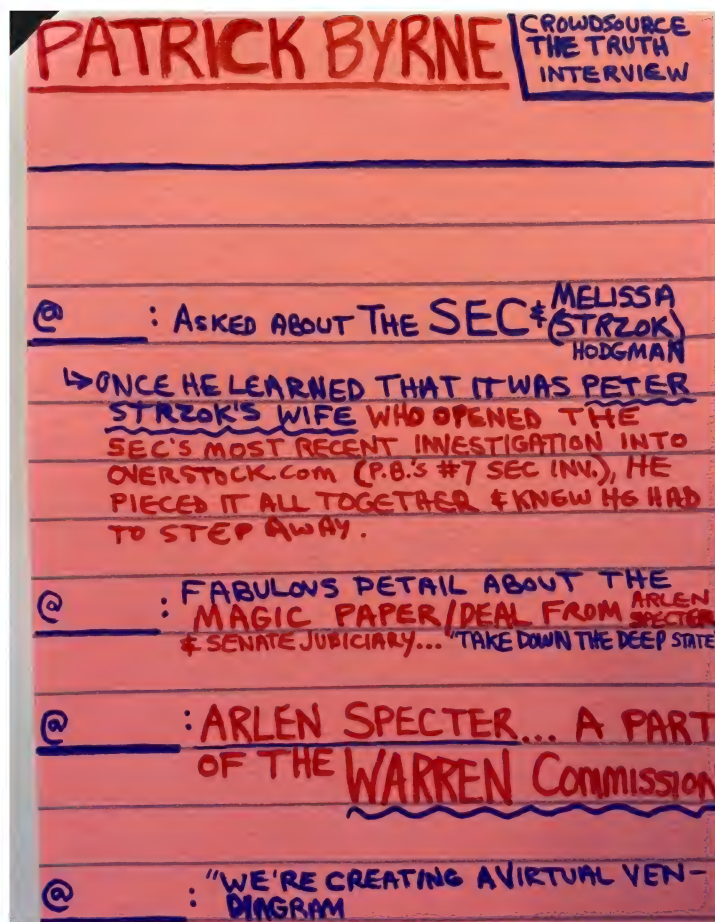 PATRICK BYRNE
CROWDSOURCE
THE TRUTH
INTERVIEW
@ : ASKED ABOUT THE SEC & MELISSA
(STRZOK)
HODGMAN
↳ ONCE HE LEARNED THAT IT WAS PETER
STRZOK'S WIFE WHO OPENED THE
SEC'S MOST RECENT INVESTIGATION INTO
OVERSTOCK.COM (P.B.'S #7 SEC INV.), HE
PIECED IT ALL TOGETHER & KNEW HE HAD
TO STEP AWAY.
@ : FABULOUS DETAIL ABOUT THE
MAGIC PAPER/DEAL FROM ARLEN
SPECTER
& SENATE JUDICIARY... "TAKE DOWN THE DEEP STATE
@ : ARLEN SPECTER... A PART
OF THE WARREN COMMISSION
@ : "WE'RE CREATING A VIRTUAL VEN-
DIAGRAM